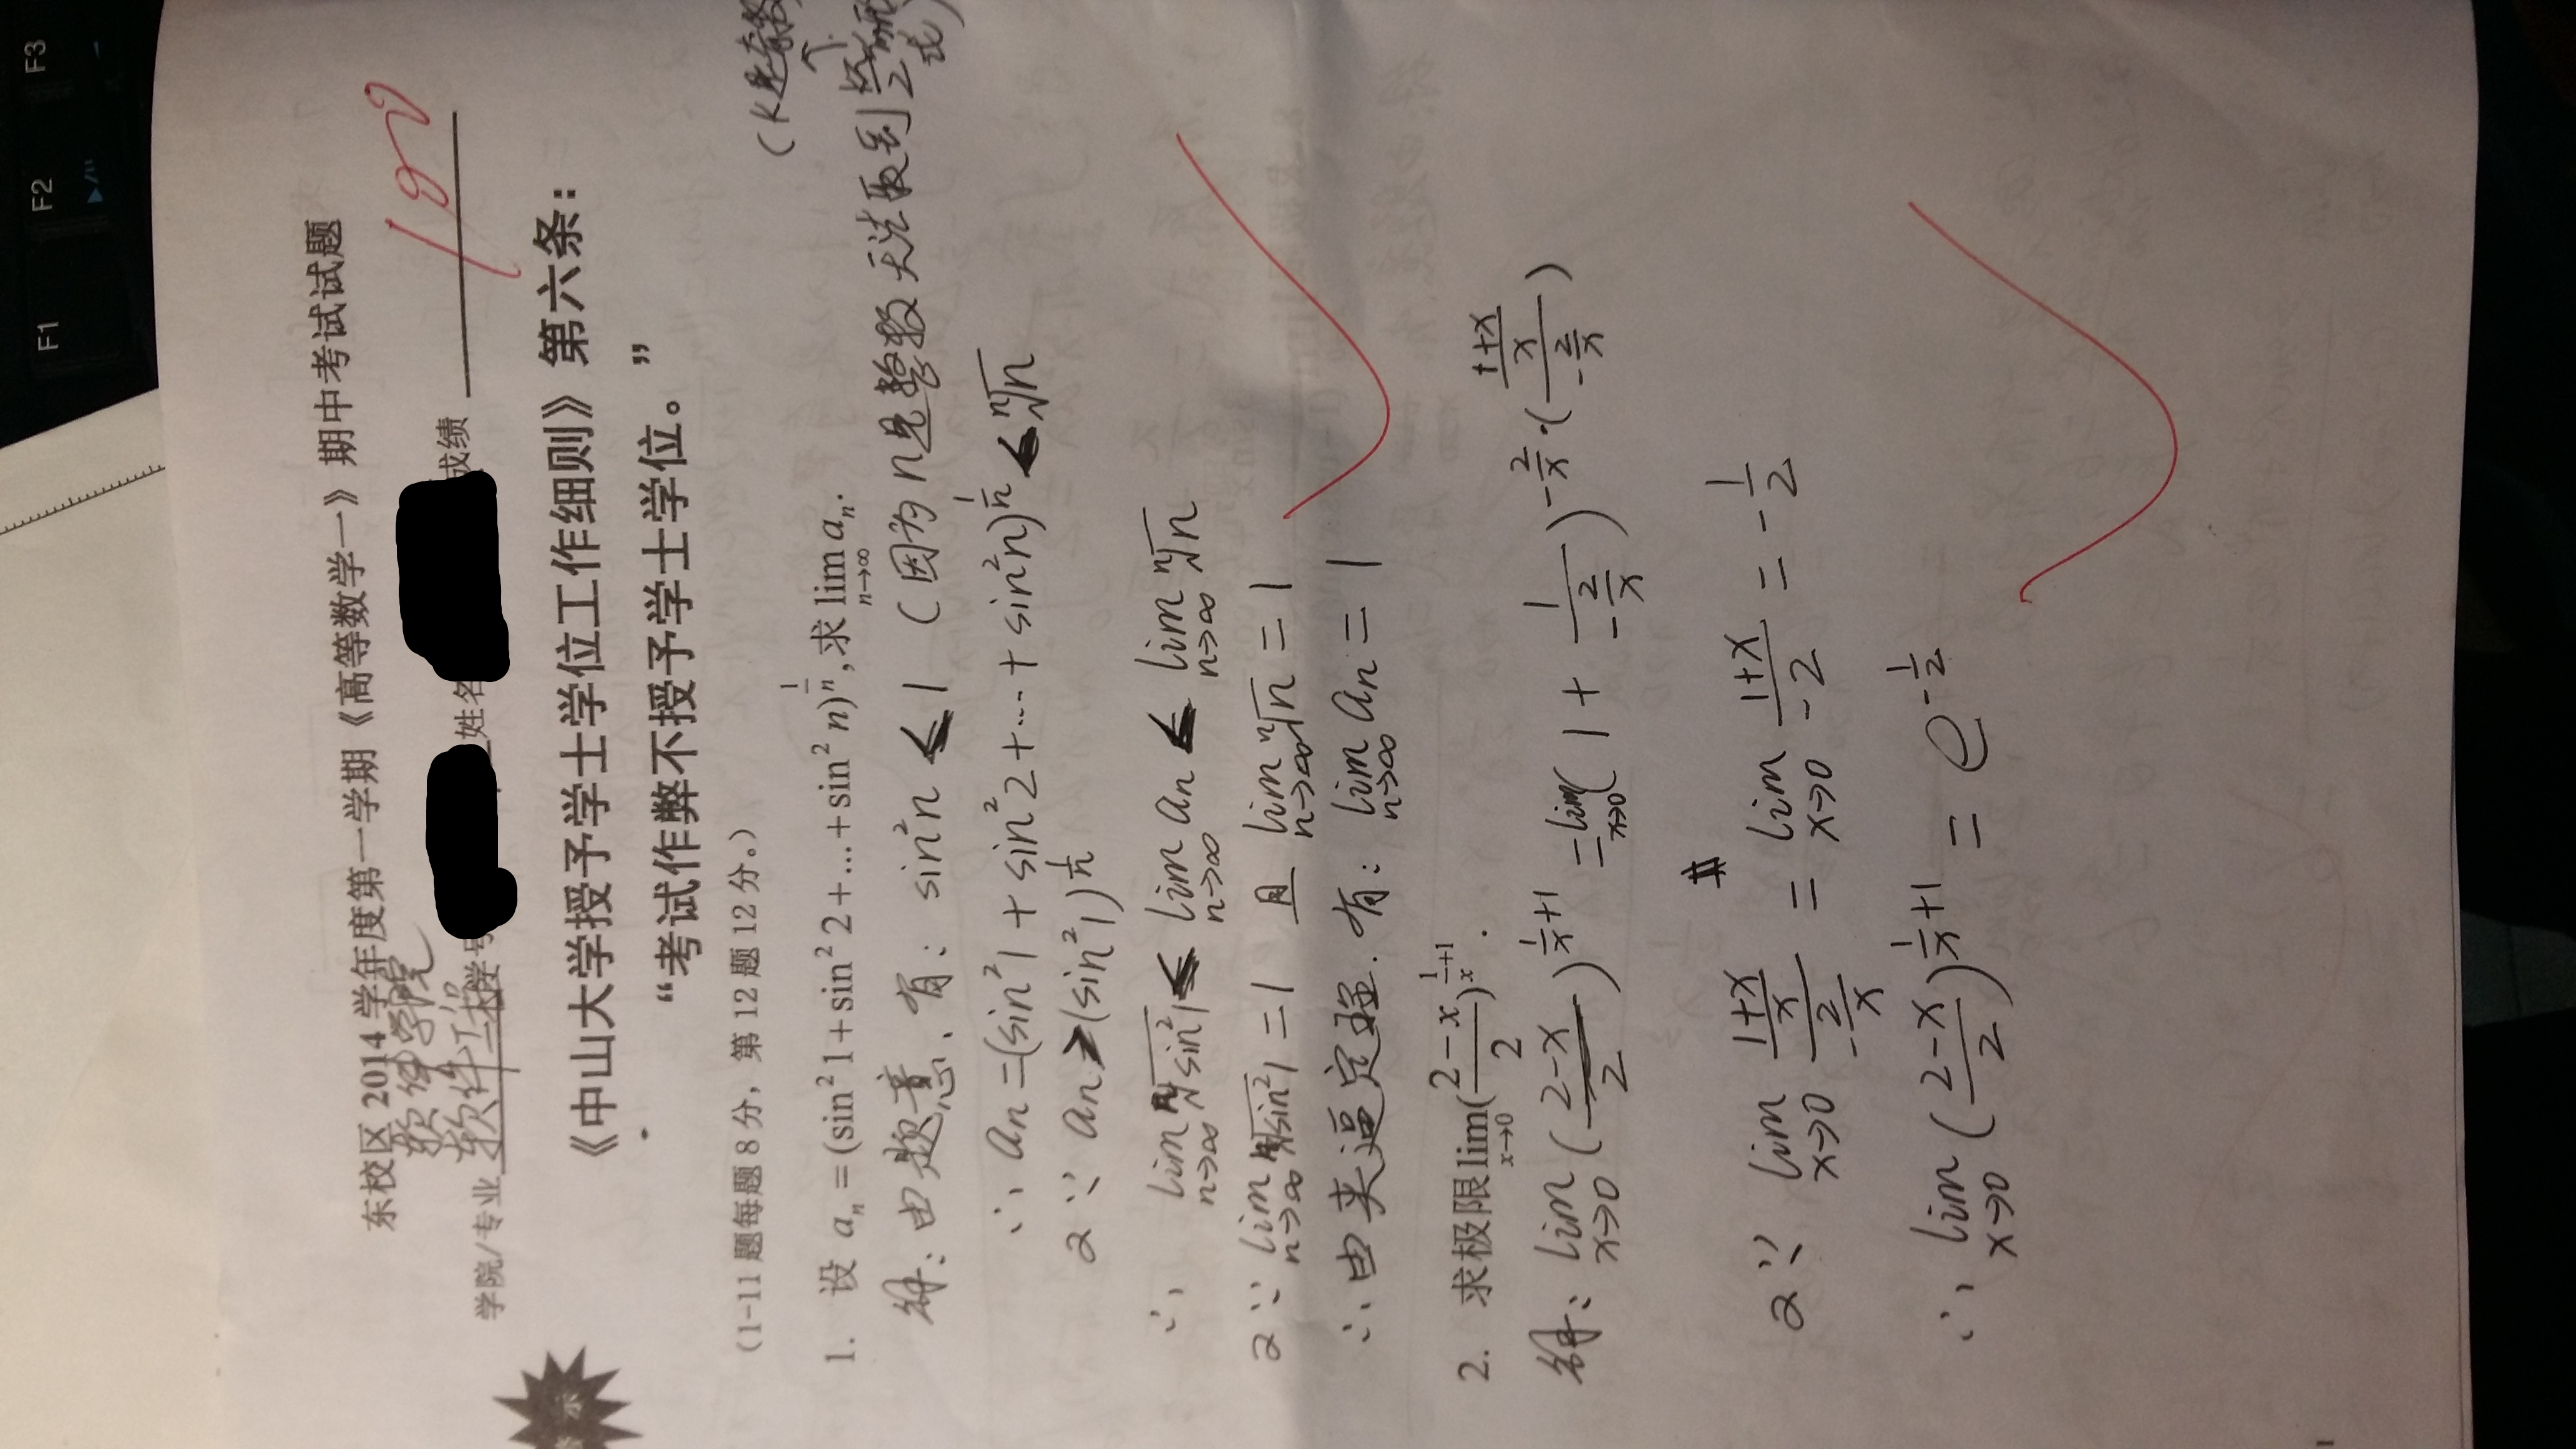 东校区 2014 学年度第一学期《高等数学一》期中考试试题
软件学院
学院/专业 软件工程 学号 姓名 成绩 100
《中山大学授予学士学位工作细则》第六条：
“考试作弊不授予学士学位。”
（1-11题每题8分，第12题12分。）
1. 设 aₙ = (sin² 1 + sin² 2 + ... + sin² n)^(1/n), 求 lim_{n→∞} aₙ.
(k是奇数)
解：由题意，有：sin²n ≤ 1 （因为n是整数无法取到 kπ/2 形式）
∴ an = (sin²1 + sin²2 + ... + sin²n)^(1/n) ≤ ⁿ√n
又∵ an ≥ (sin²1)^(1/n)
∴ lim_{n→∞} ⁿ√sin²1 ≤ lim_{n→∞} an ≤ lim_{n→∞} ⁿ√n
又∵ lim_{n→∞} ⁿ√sin²1 = 1 且 lim_{n→∞} ⁿ√n = 1
∴ 由夹逼定理，有：lim_{n→∞} an = 1
2. 求极限 lim_{x→0} ((2-x)/2)^(1/x+1).
解：lim_{x→0} ((2-x)/2)^(1/x+1) = lim_{x→0} (1 + 1/(-2/x))^(-2/x·(((1+x)/x)/(-2/x)))
又∵ lim_{x→0} ((1+x)/x)/(-2/x) = lim_{x→0} (1+x)/(-2) = -1/2
∴ lim_{x→0} ((2-x)/2)^(1/x+1) = e^(-1/2)
F1
F2
F3
1